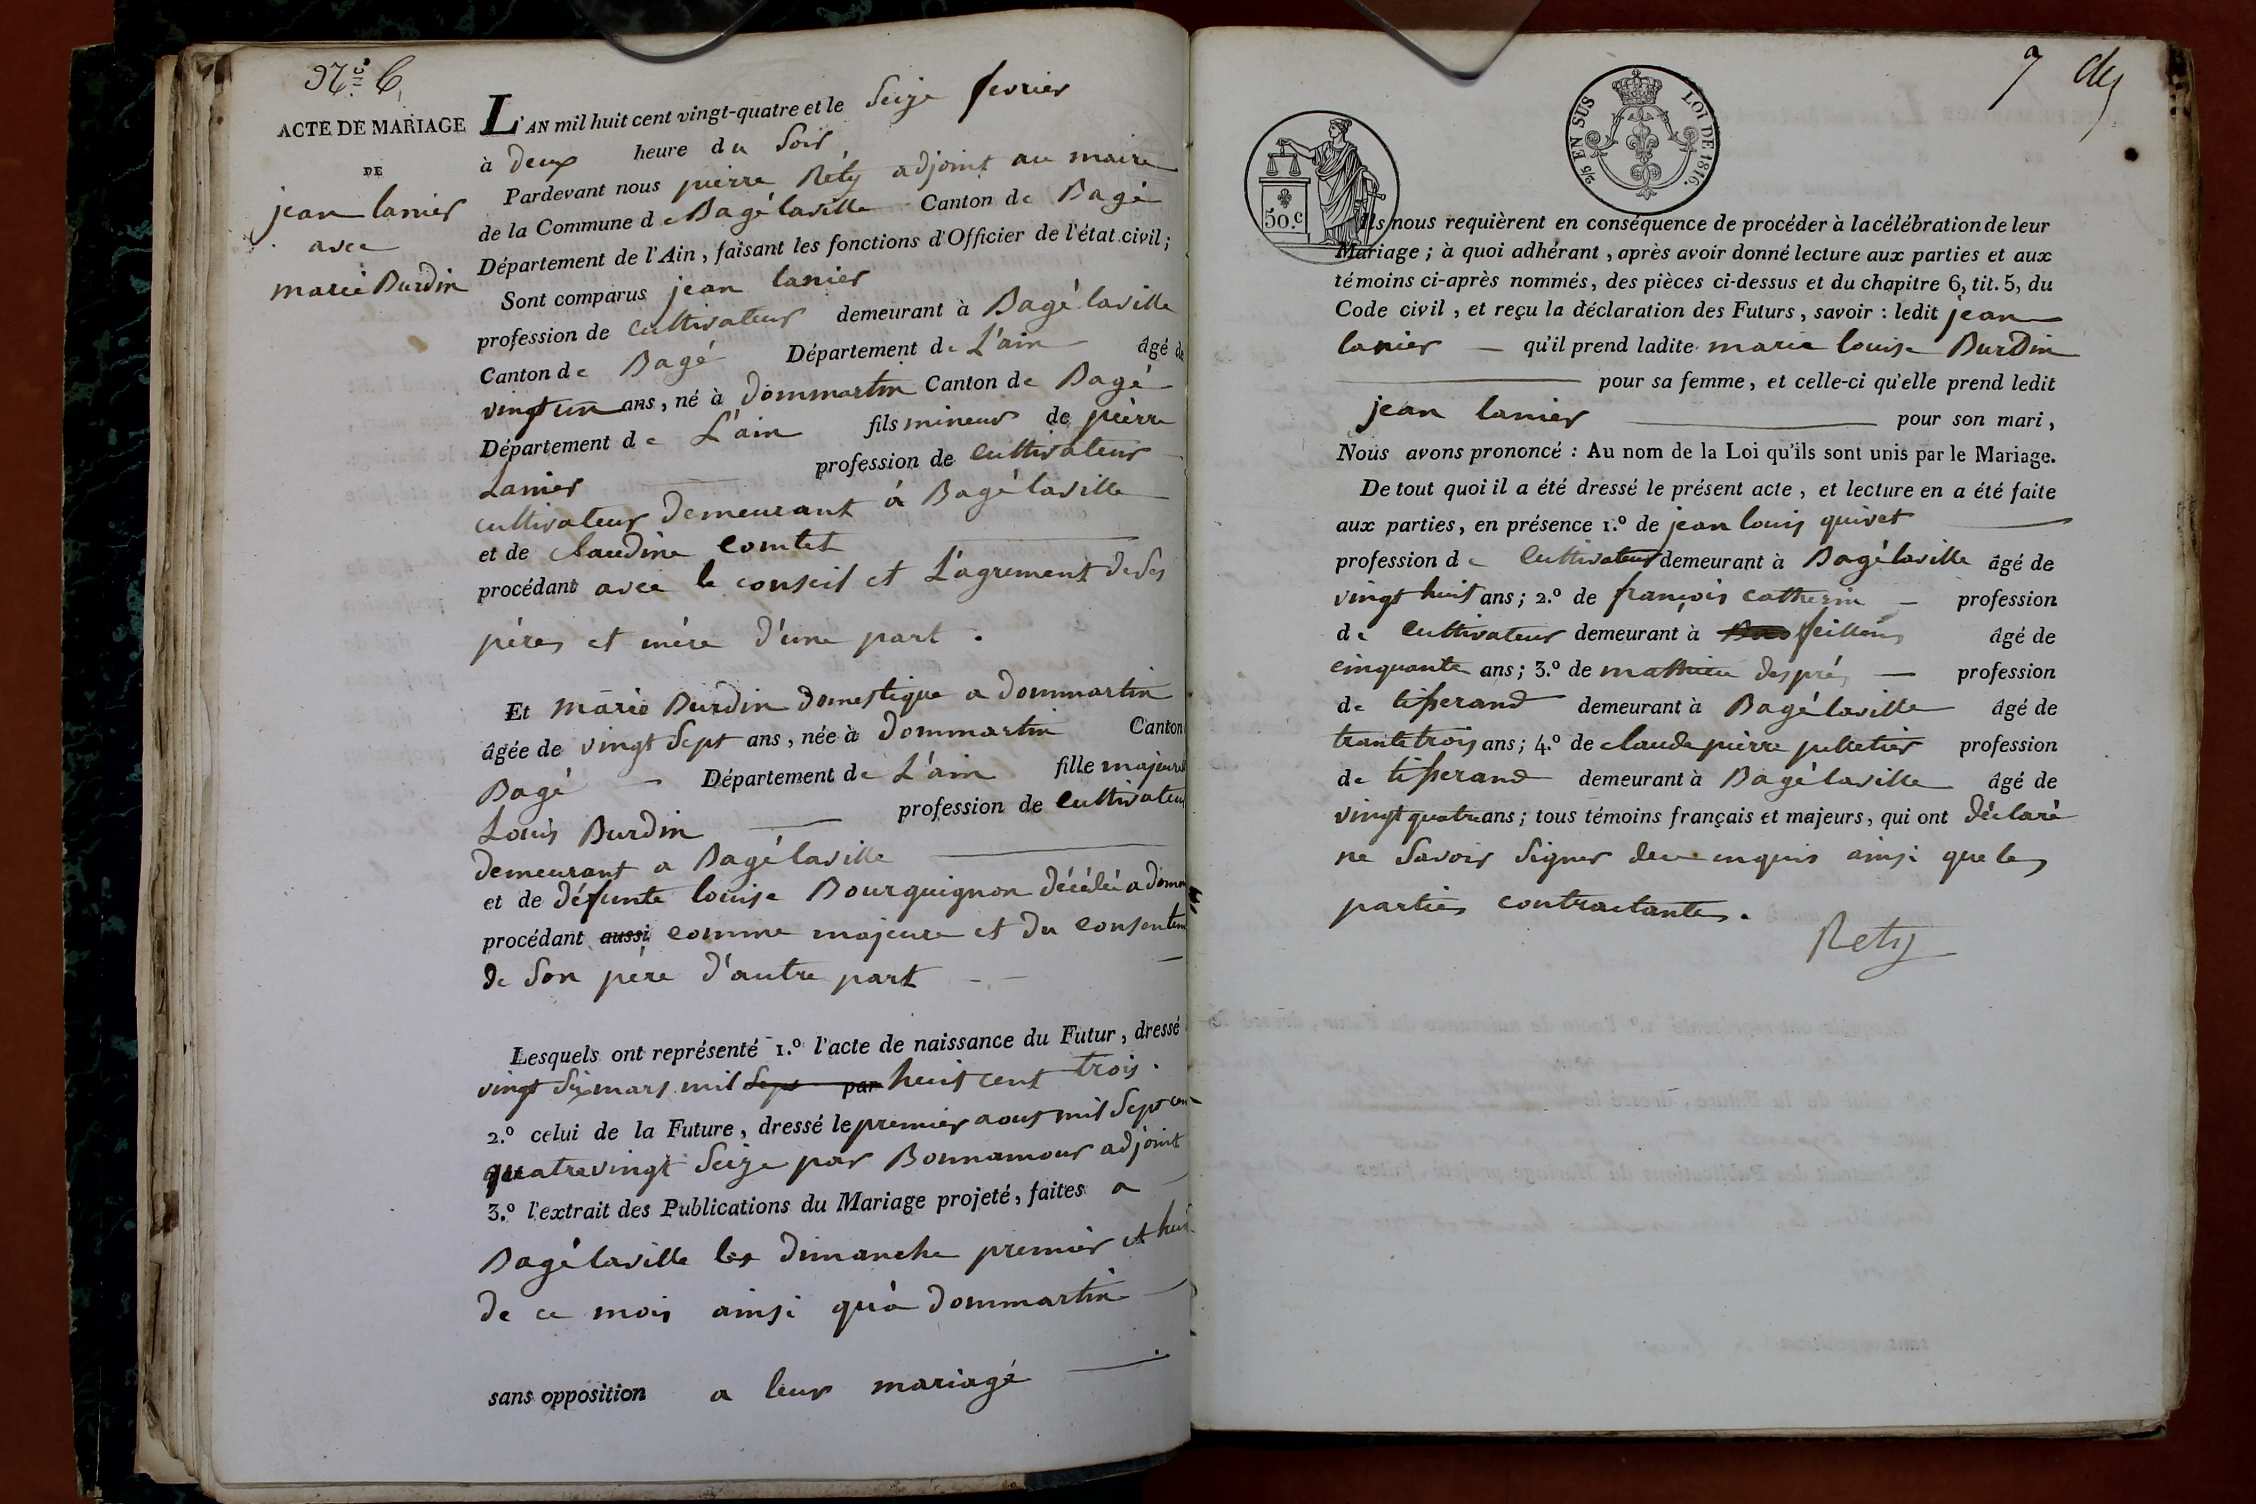 N.o 6
ACTE DE MARIAGE
DE
jean lanier
avec
marie Burdin
L'AN mil huit cent vingt-quatre et le Seize fevrier
à deux heure du Soir
Pardevant nous pierre Réty adjoint au maire
de la Commune de Bagé laville Canton de Bagé
Département de l'Ain, faisant les fonctions d'Officier de l'état civil;
Sont comparus jean lanier
profession de cultivateur demeurant à Bagé laville
Canton de Bagé Département de L'ain âgé de
vingt un ans, né à Dommartin Canton de Bagé
Département de L'ain fils mineur de pierre
Lanier profession de cultivateur
cultivateur demeurant à Bagé laville
et de claudine comtet
procédant avec le conseil et L'agrement de Ses
pères et mère d'une part.
Et marie Burdin domestique a dommartin
âgée de vingt Sept ans, née à dommartin Canton
Bagé Département de L'ain fille majeure
Louis Burdin profession de cultivateur
demeurant a Bagé laville
et de défunte louise Bourguignon décédée a dom
procédant aussi comme majeure et du consentem
de Son père d'autre part
Lesquels ont représenté 1.o l'acte de naissance du Futur, dressé
vingt Six mars mil Sept par huit cent trois.
2.o celui de la Future, dressé le premier aout mil Sept cen
quatrevingt Seize par Bonnamour adjoint
3.o l'extrait des Publications du Mariage projeté, faites a
Bagé laville les dimanche premier et huit
de ce mois ainsi qu'à dommartin
sans opposition a leur mariagé
7 
50.c
5/2 EN SUS LOI DE 1816.
Ils nous requièrent en conséquence de procéder à la célébration de leur
Mariage; à quoi adhérant, après avoir donné lecture aux parties et aux
témoins ci-après nommés, des pièces ci-dessus et du chapitre 6, tit. 5, du
Code civil, et reçu la déclaration des Futurs, savoir: ledit jean
lanier qu'il prend ladite marie louise Burdin
pour sa femme, et celle-ci qu'elle prend ledit
jean lanier pour son mari,
Nous avons prononcé: Au nom de la Loi qu'ils sont unis par le Mariage.
De tout quoi il a été dressé le présent acte, et lecture en a été faite
aux parties, en présence 1.o de jean louis quivet
profession de cultivateur demeurant à Bagé laville âgé de
vingt huit ans; 2.o de françois catherin profession
de cultivateur demeurant à feillens âgé de
cinquante ans; 3.o de mathieu després profession
de tisserand demeurant à Bagé laville âgé de
trante trois ans; 4.o de claude pierre pelletier profession
de tisserand demeurant à Bagé laville âgé de
vingt quatre ans; tous témoins français et majeurs, qui ont déclaré
ne Savoir Signer de ce enquis ainsi que les
parties contractantes.
Rety